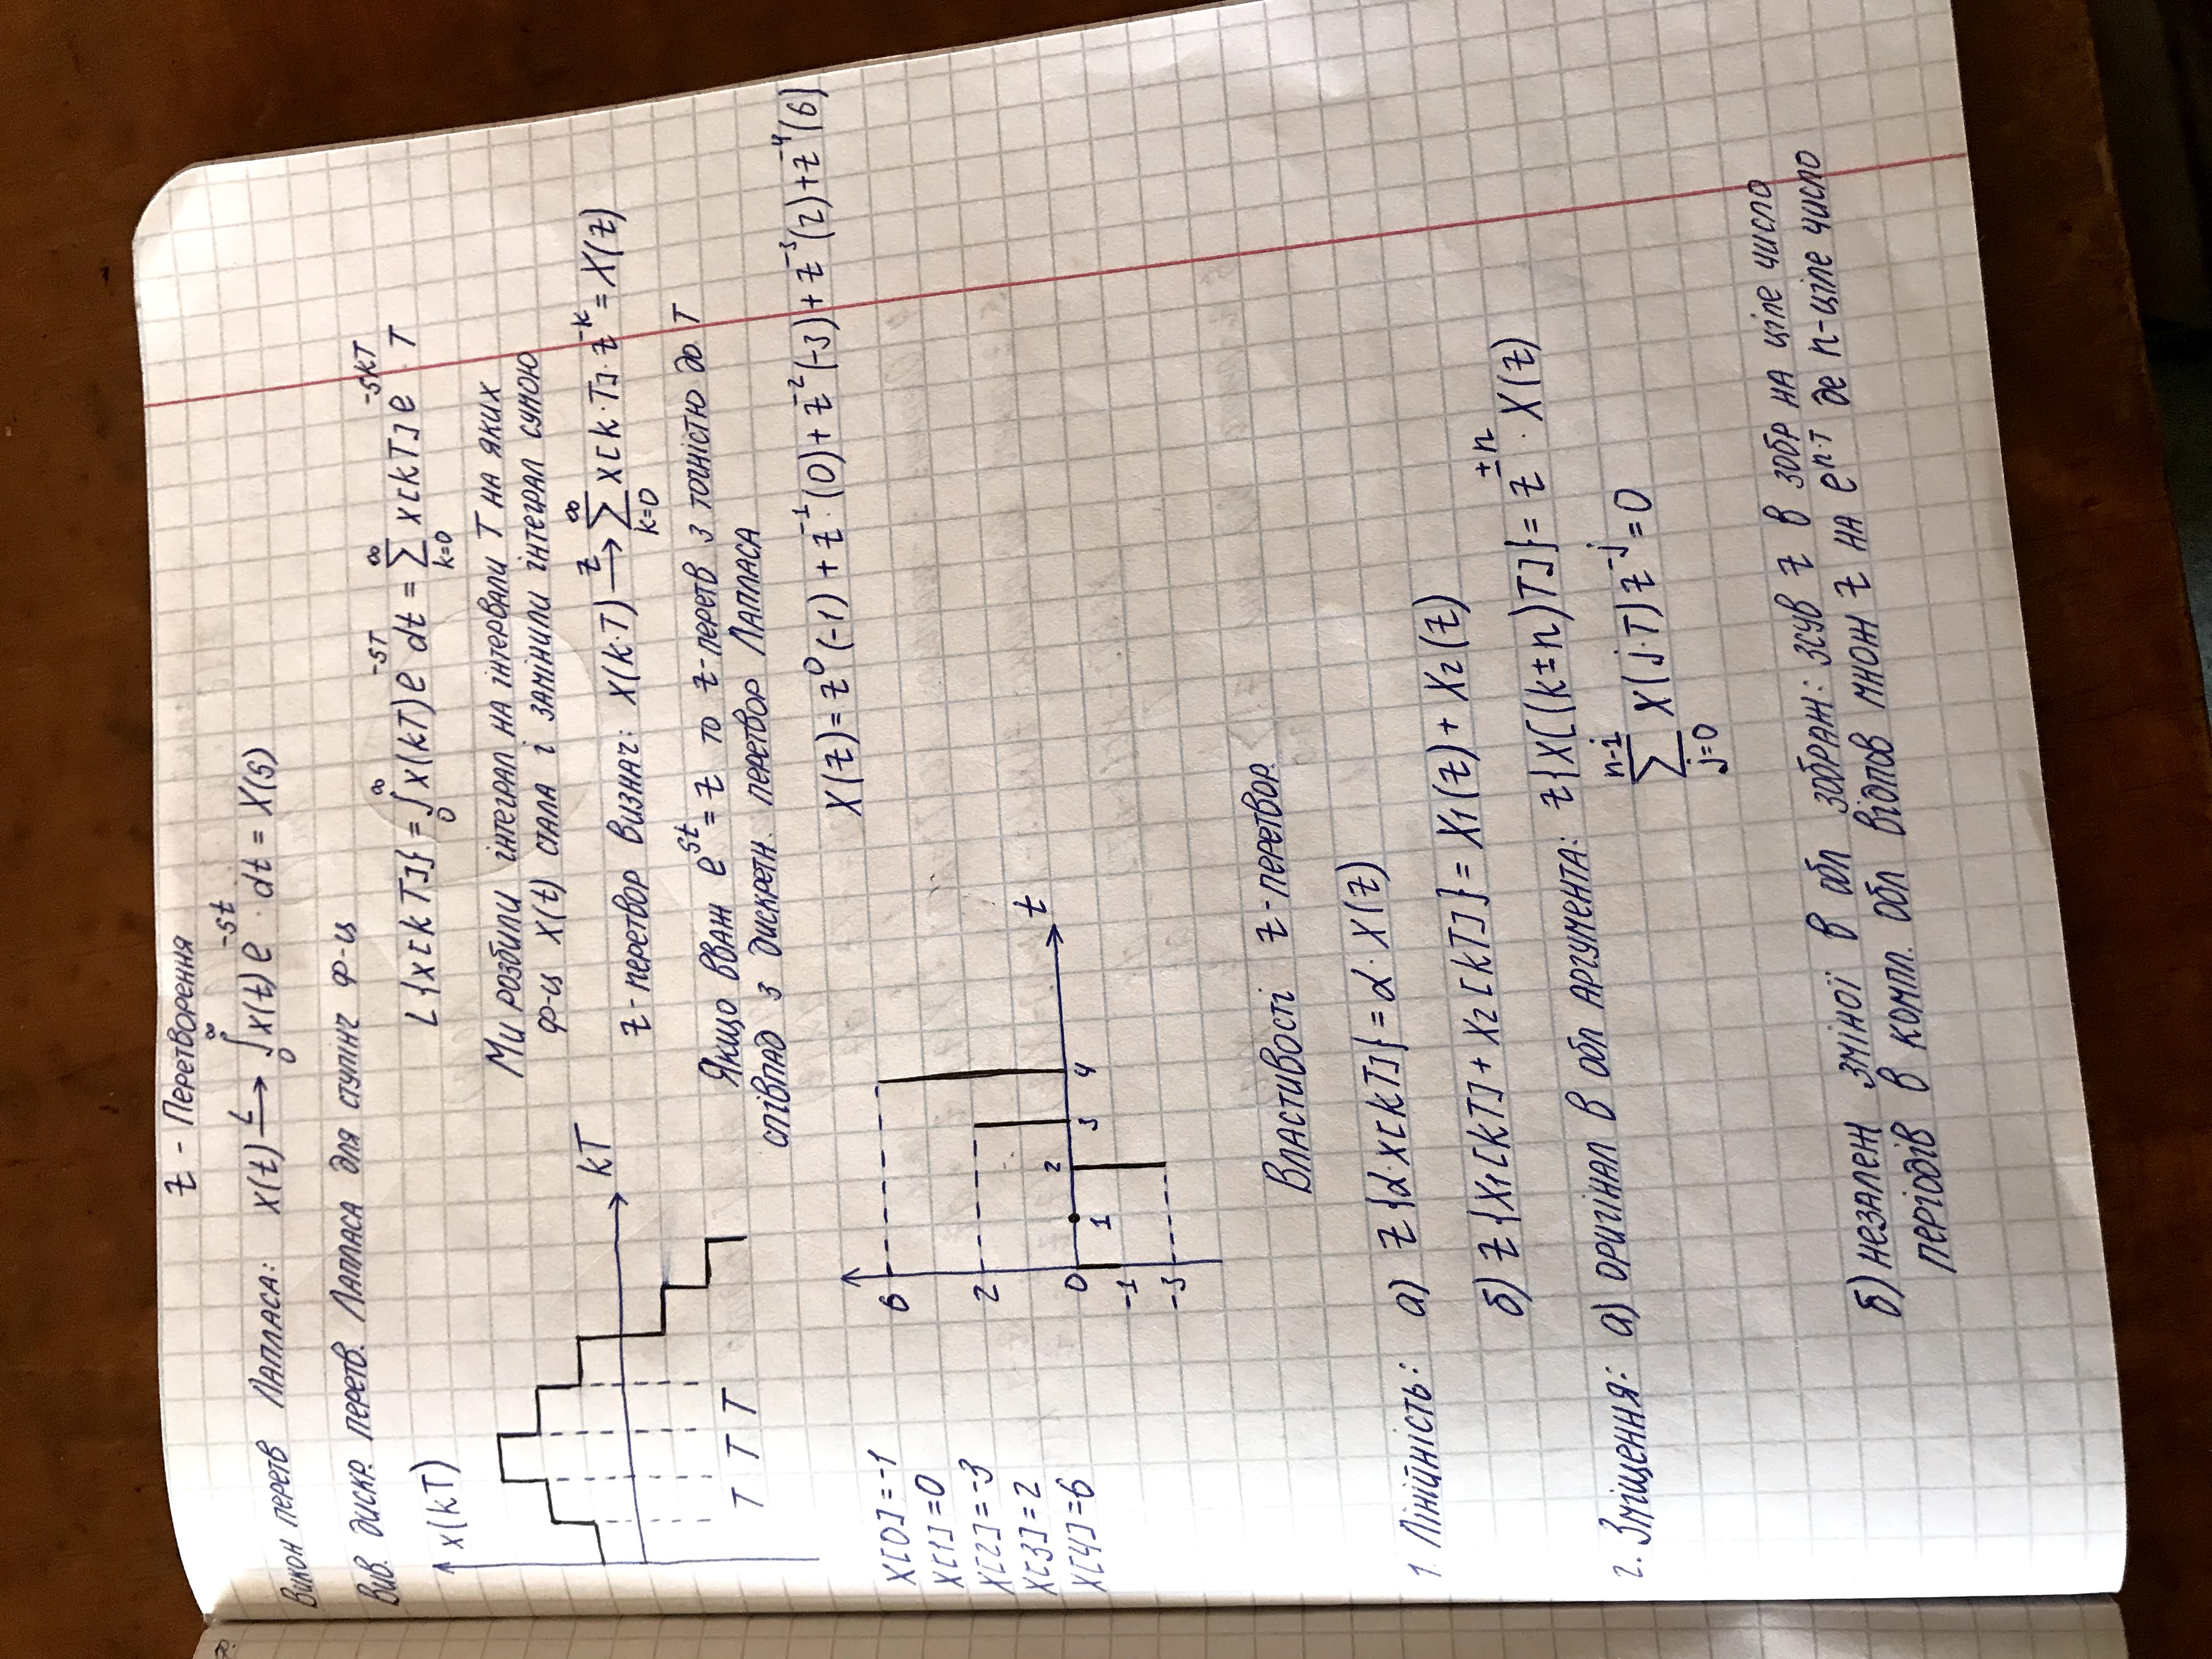 z - Перетворення
Викон перетв Лапласа: x(t) —L→ ∫₀^∞ x(t) e^(-st) · dt = X(s)
Вив. дискр. перетв. Лапласа для ступінч ф-ц
L{x[kT]} = ∫₀^∞ x(kT) e^(-sT) dt = ∑_(k=0)^∞ x[kT] e^(-skT) · T
x(kT)
Ми розбили інтеграл на інтервали T на яких
ф-ц x(t) стала і замінили інтеграл сумою
kT
z-перетвор визнач: x(k·T) —z→ ∑_(k=0)^∞ x[k·T]·z^(-k) = X(z)
Якщо вваж e^(st) = z то z-перетв з точністю до T
T T T
співпад з дискретн. перетвор Лапласа
X(z) = z^0(-1) + z^(-1)·(0) + z^(-2)(-3) + z^(-3)(2) + z^(-4)(6)
X[0]=-1
X[1]=0
X[2]=-3
X[3]=2
X[4]=6
6
2
t
0
1
2
3
4
-1
-3
Властивості z-перетвор.
1. Лінійність: а) z{α·x[kT]} = α·X(z)
б) z{x₁[kT] + x₂[kT]} = X₁(z) + X₂(z)
2. Зміщення: а) оригінал в обл аргумента: z{x[(k±n)T]} = z^(±n) · X(z)
∑_(j=0)^(n-1) x(j·T) z^(-j) = 0
б) незалеж зміної в обл зображ: зсув z в зобр на ціле число
періодів в компл. обл відпов множ z на e^(n·T) де n-ціле число